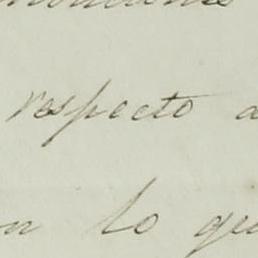 respecto a
n lo qu